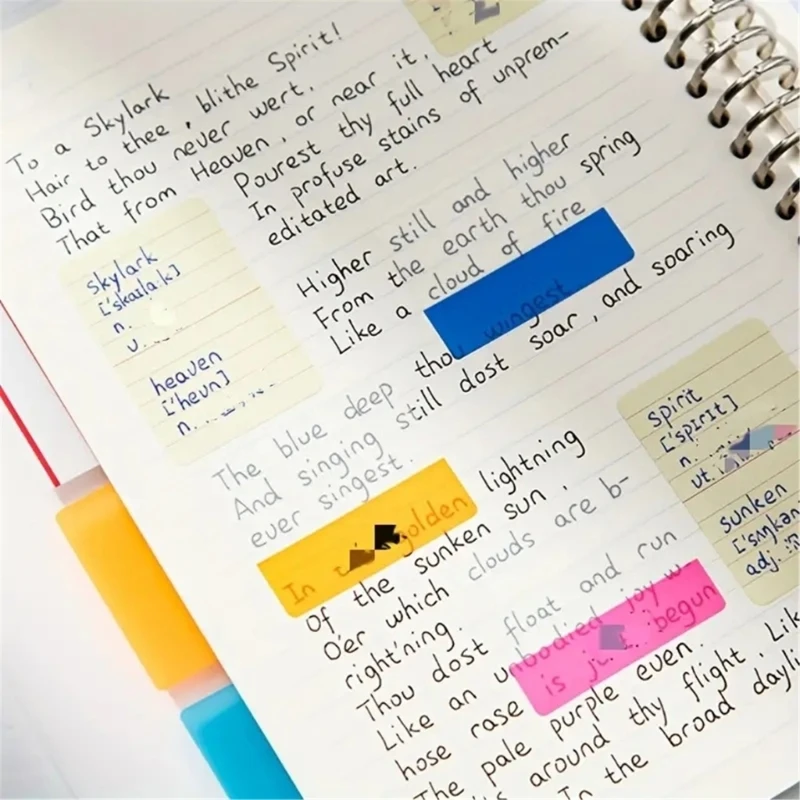 To a Skylark
Hair to thee, blithe Spirit!
Bird thou never wert.
That from Heaven, or near it,
Pourest thy full heart
In profuse stains of unprem-
editated art.
skylark
['skaila:k]
n.
v.
heaven
['hevn]
n.
Higher still and higher
From the earth thou spring
Like a cloud of fire
The blue deep thou wingest
And singing still dost soar, and soaring
ever singest.
spirit
['spirit]
n.
vt.
sunken
adj.
In golden lightning
Of the sunken sun,
O'er which clouds are b-
right'ning.
Thou dost float and run
Like an unbodied joy w
hose rase is begun
The pale purple even.
around thy flight. Lik
In the broad dayli